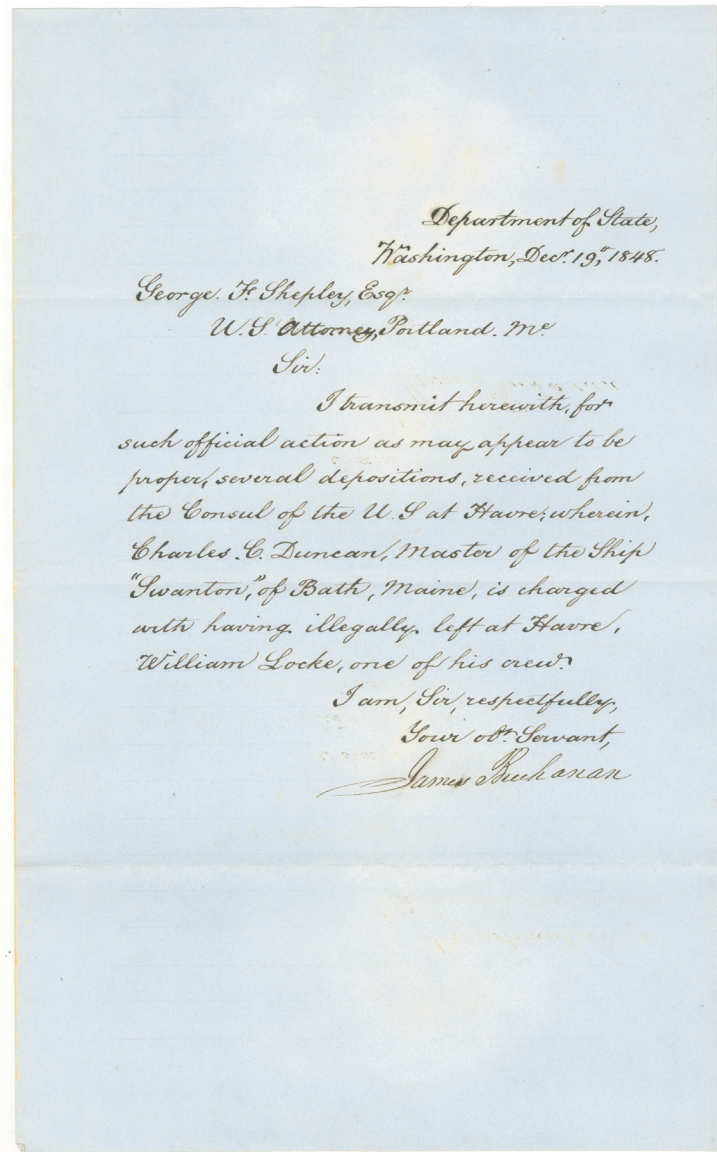 Department of State,
Washington, Decr. 19, 1848.
George. F. Shepley, Esqr.
U. S. Attorney, Portland. Me
Sir:
I transmit herewith, for
such official action as may appear to be
proper, several depositions, received from
the Consul of the U. S at Havre; wherein,
Charles. C. Duncan, Master of the Ship
"Swanton," of Bath, Maine, is charged
with having illegally left at Havre,
William Locke, one of his crew.
I am, Sir, respectfully,
Your obt. Servant,
James Buchanan